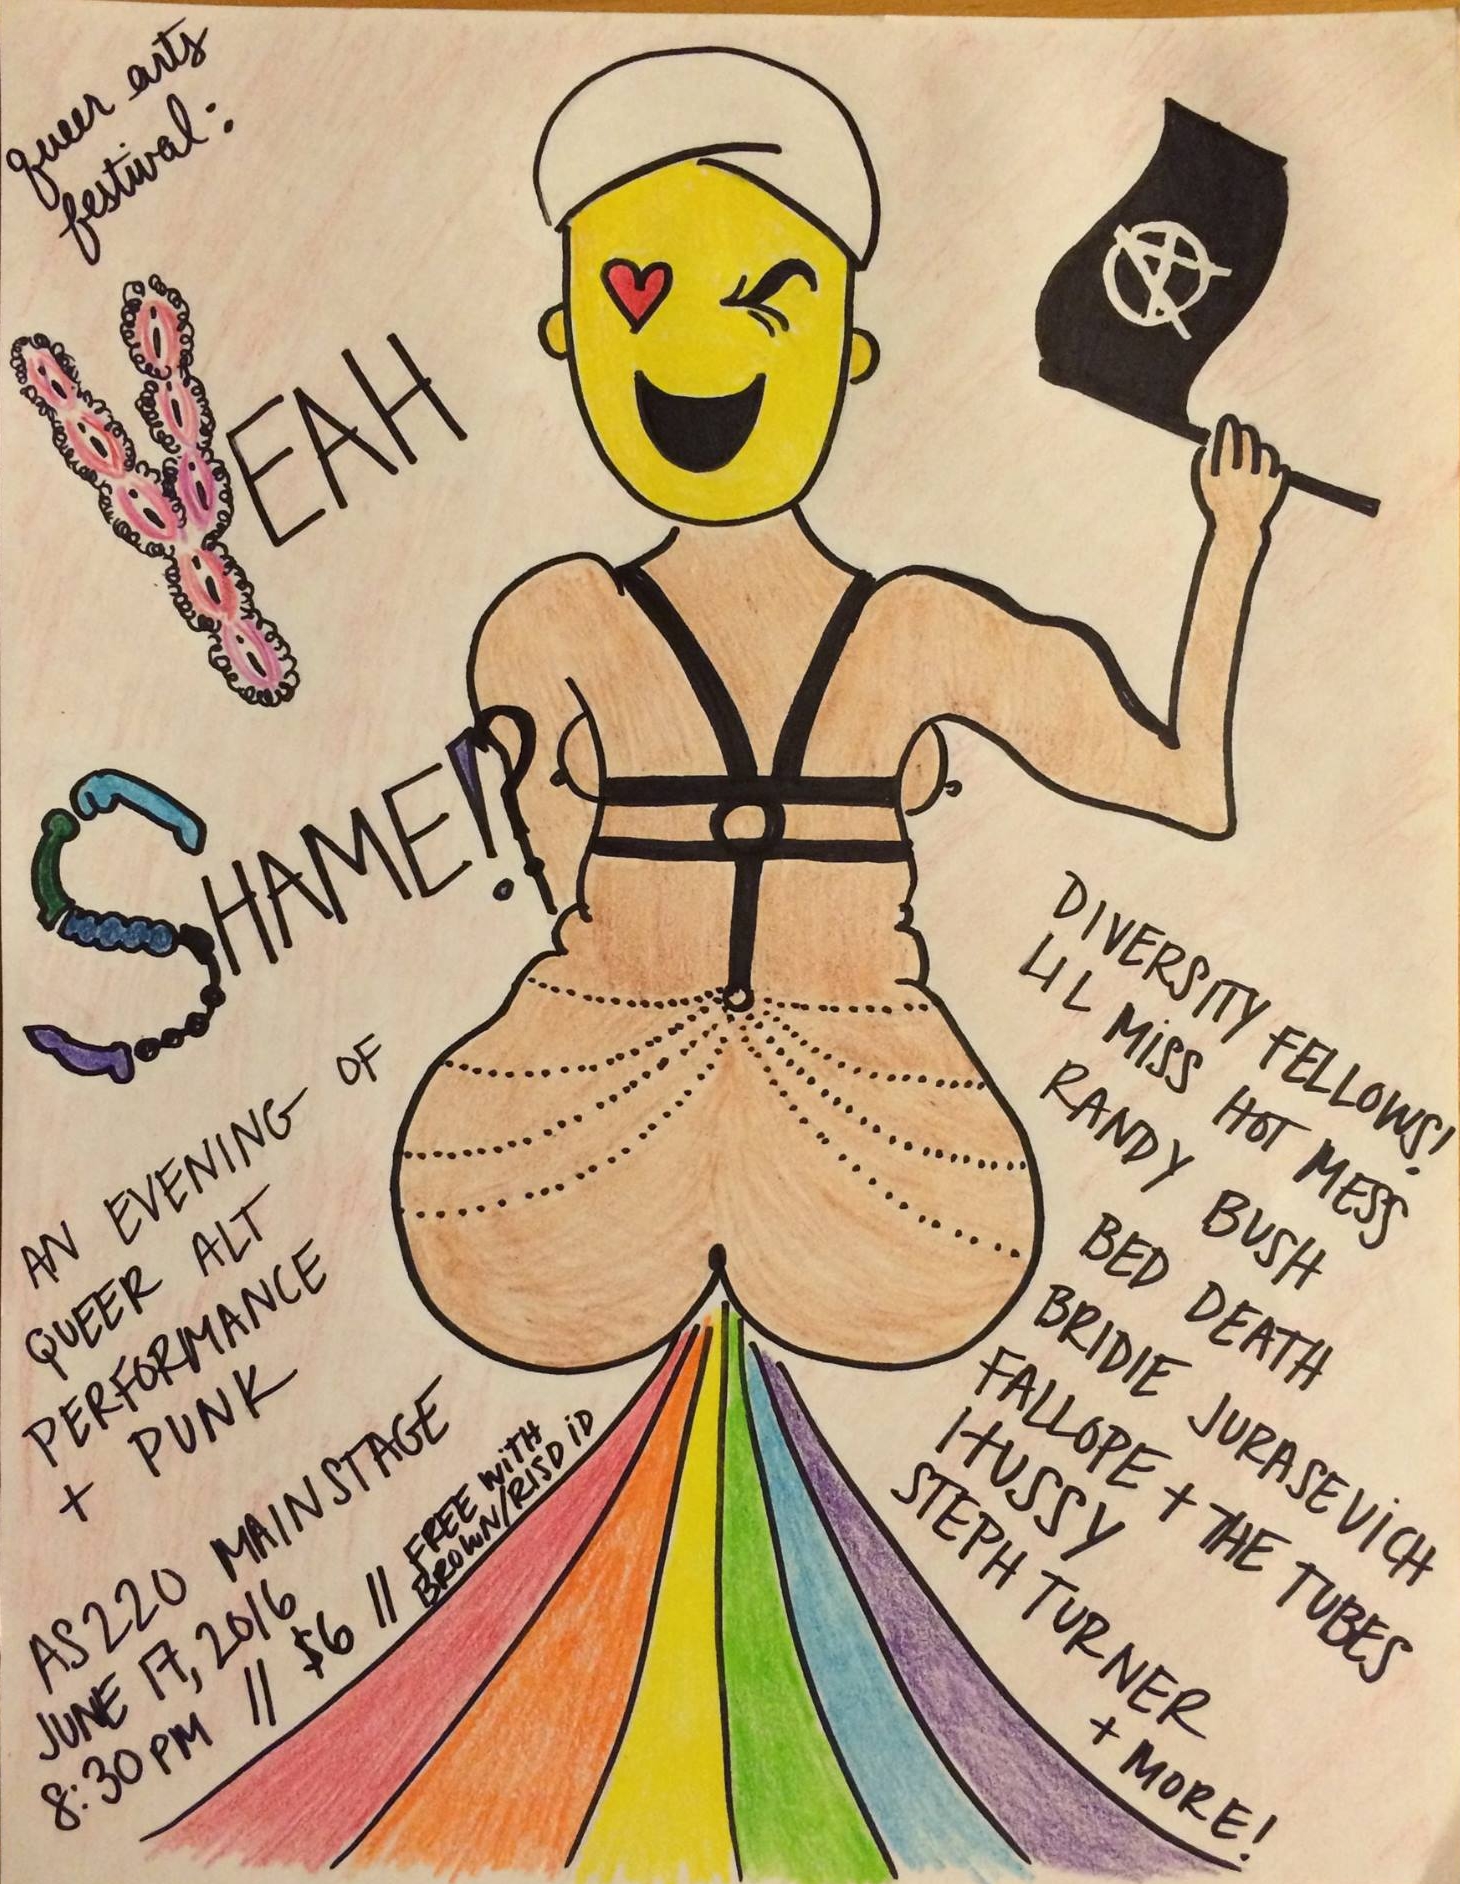 queer arts
festival:
YEAH
SHAME!?
AN EVENING OF
QUEER ALT
PERFORMANCE
+ PUNK
AS220 MAINSTAGE
JUNE 17, 2016
8:30PM // $6 // FREE WITH
BROWN/RISD ID
DIVERSITY FELLOWS!
LIL MISS HOT MESS
RANDY BUSH
BED DEATH
BRIDIE JURASEVICH
FALLOPE + THE TUBES
HUSSY
STEPH TURNER
+ MORE!